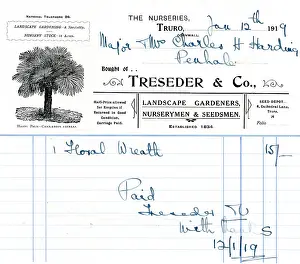 NATIONAL TELEPHONE 26.
LANDSCAPE GARDENING A Speciality.
NURSERY STOCK
THE NURSERIES,
TRURO, Jan 12th 1919
CORNWALL
Major & Mrs Charles H Harding
Penhale
Bought of
TRESEDER & Co.,
Mart-Price allowed for Empties if Returned in Good Condition, Carriage Paid.
LANDSCAPE GARDENERS,
NURSERYMEN & SEEDSMEN.
ESTABLISHED 1834
SEED DEPOT—
Truro
1 Floral Wreath 15/-
Paid
Treseder
With thanks
12/1/19